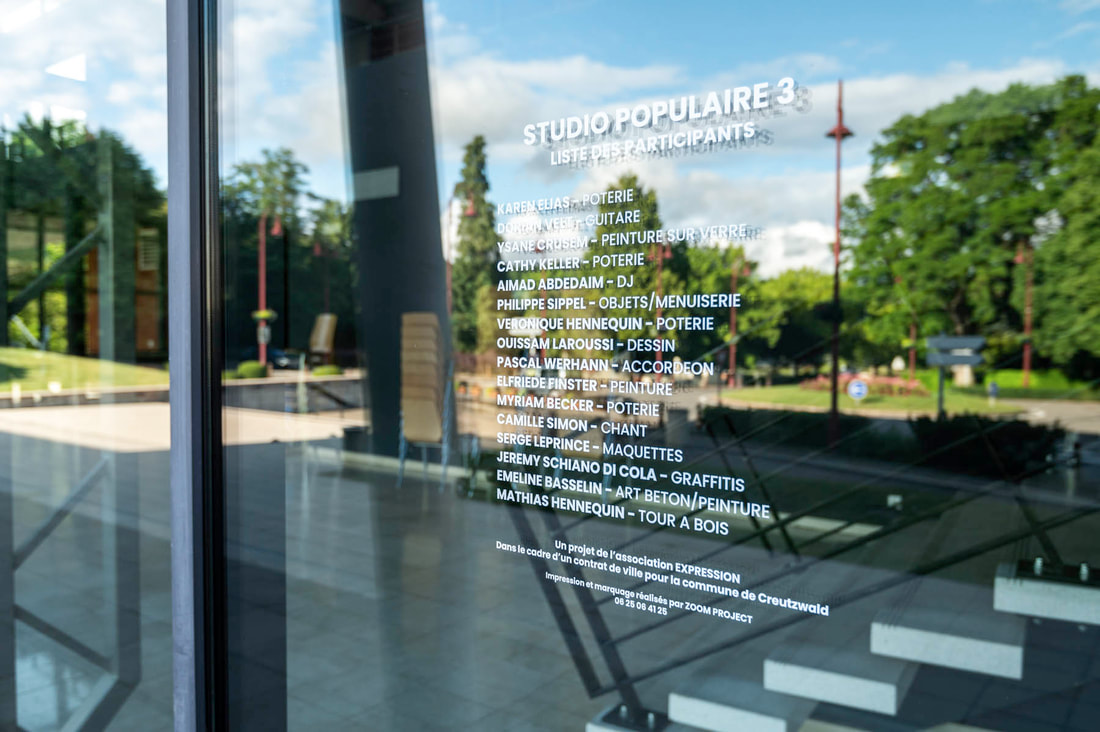 STUDIO POPULAIRE 3
LISTE DES PARTICIPANTS
KAREN ELIAS - POTERIE
DORIAN VELT - GUITARE
YSANE CRUSEM - PEINTURE SUR VERRE
CATHY KELLER - POTERIE
AIMAD ABDEDAIM - DJ
PHILIPPE SIPPEL - OBJETS/MENUISERIE
VERONIQUE HENNEQUIN - POTERIE
OUISSAM LAROUSSI - DESSIN
PASCAL WERHANN - ACCORDEON
ELFRIEDE FINSTER - PEINTURE
MYRIAM BECKER - POTERIE
CAMILLE SIMON - CHANT
SERGE LEPRINCE - MAQUETTES
JEREMY SCHIANO DI COLA - GRAFFITIS
EMELINE BASSELIN - ART BETON/PEINTURE
MATHIAS HENNEQUIN - TOUR A BOIS
Un projet de l'association EXPRESSION
Dans le cadre d'un contrat de ville pour la commune de Creutzwald
Impression et marquage réalisés par ZOOM PROJECT
06 25 06 41 25